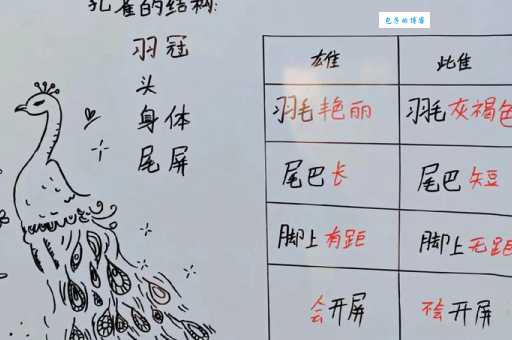 孔雀的结构:
羽冠
头
身体
尾屏
包子的博客
雄 雌
羽毛艳丽 羽毛灰褐色
尾巴长 尾巴短
脚上有距 脚上无距
会开屏 不会开屏